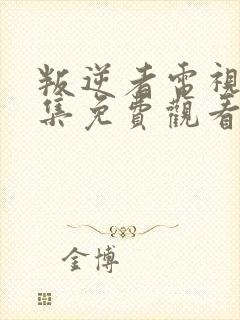 叛逆者電視
集免費觀看
金博